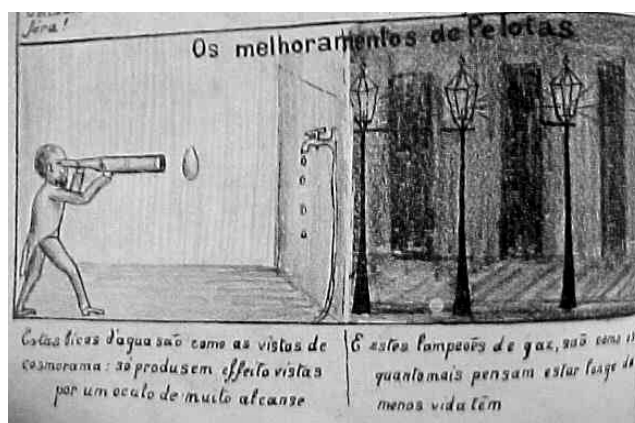 fera!
Os melhoramentos de Pelotas
Estas bicas d'agua são como as vistas de
cosmorama: só produsem effeito vistas
por um oculo de muito alcanse
E estes lampeões de gaz, são como
quanto mais pensam estar longe
menos vida têm